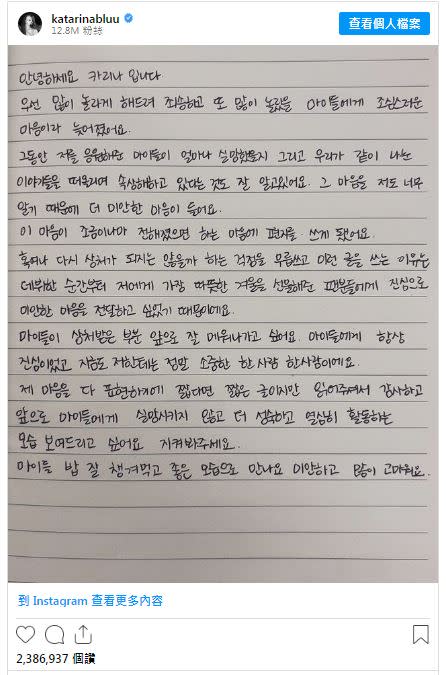 katarinabluu
12.8M 粉絲
查看個人檔案
안녕하세요 카리나 입니다
우선 많이 놀라게 해드려 죄송하고 또 많이 놀랐을 마이들에게 조심스러운
마음이라 늦어졌어요.
그동안 저를 응원해준 마이들이 얼마나 실망했을지 그리고 우리가 같이 나눈
이야기들을 떠올리며 속상해하고 있다는 것도 잘 알고있어요. 그 마음을 저도 너무
알기 때문에 더 미안한 마음이 들어요.
이 마음이 조금이나마 전해졌으면 하는 마음에 편지를 쓰게 됐어요.
혹여나 다시 상처가 되지는 않을까 하는 걱정을 무릅쓰고 이런 글을 쓰는 이유는
데뷔한 순간부터 저에게 가장 따뜻한 겨울을 선물해준 팬분들에게 진심으로
미안한 마음을 전달하고 싶었기 때문이에요.
마이들이 상처받은 부분 앞으로 잘 메워나가고 싶어요. 마이들에게 항상
진심이었고 지금도 저한테는 정말 소중한 한 사람 한사람이에요.
제 마음을 다 표현하기에 짧다면 짧은 글이지만 읽어주셔서 감사하고
앞으로 마이들에게 실망시키지 않고 더 성숙하고 열심히 활동하는
모습 보여드리고 싶어요. 지켜봐주세요.
마이들 밥 잘 챙겨먹고 좋은 모습으로 만나요 미안하고 많이 고마워요.
到 Instagram 查看更多內容
2,386,937 個讚